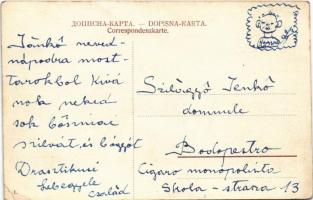 ДОПИСНА-КАРТА. — DOPISNA-KARTA.
Correspondenzkarte.
Jánkó neved-
nápodra most-
tarokból Kivá
nok neked
sok bősniac
szilvát, és bőgőt
Drasztikusi
család
Szilvágyő Jenkő
dommule
Bodopestro
Cigaro monopolista
Skola - strasa 13